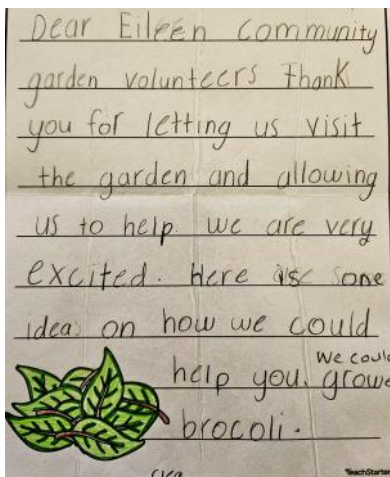 Dear Eileen community
garden volunteers Thank
you for letting us visit
the garden and allowing
us to help. we are very
excited. Here is some
ideas on how we could
help you. We could growe
brocoli.
TeachStarter